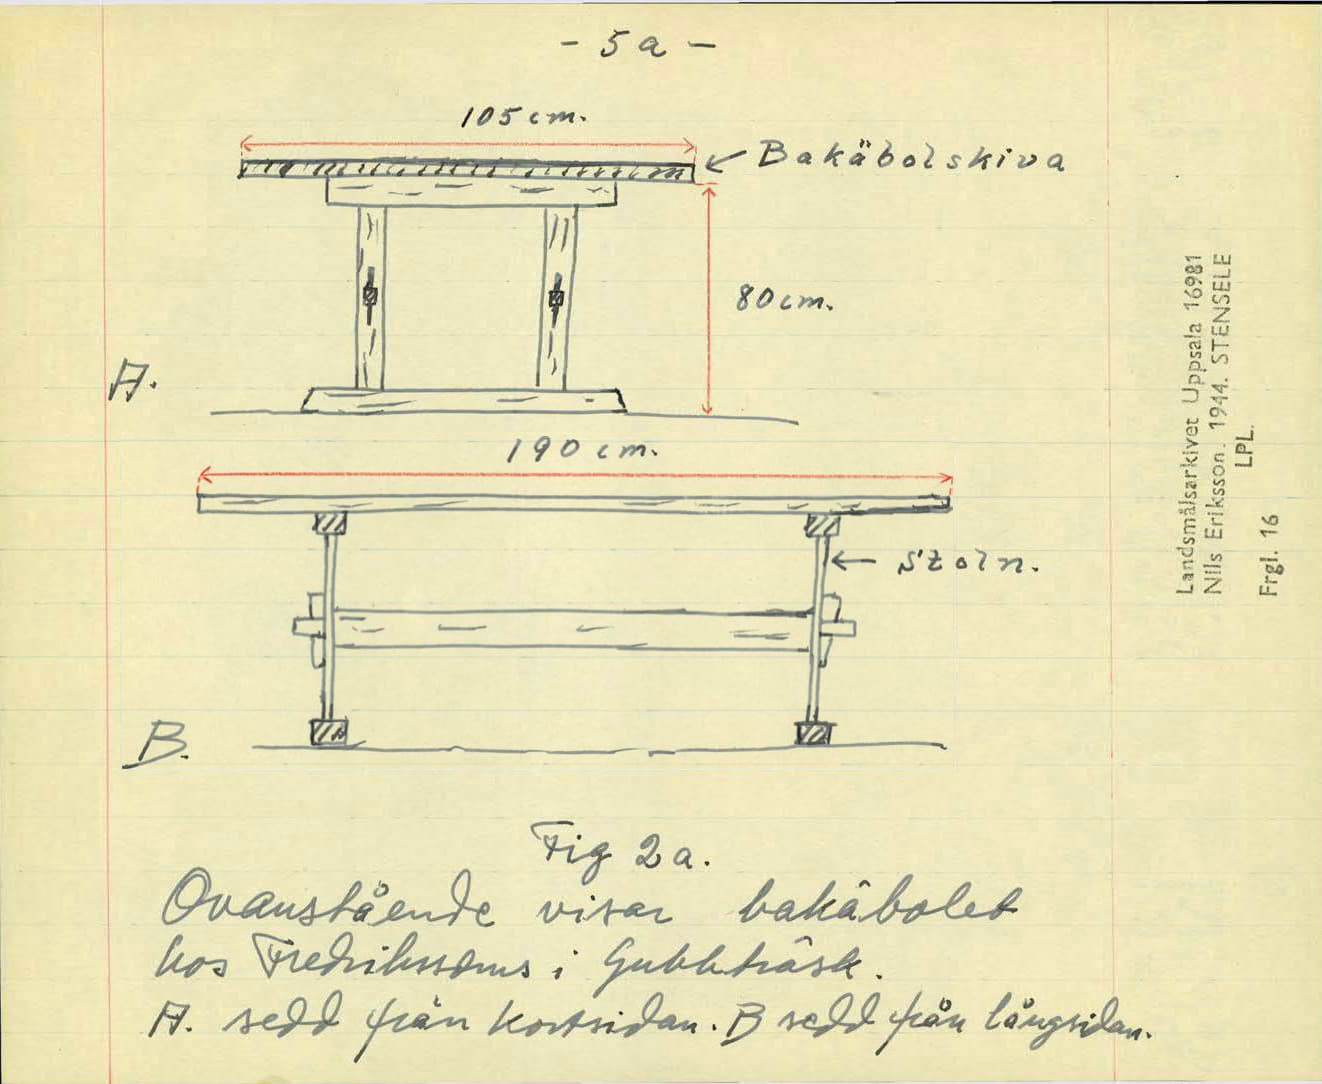 - 5 a -
105 cm.
Bakäbolskiva
80 cm.
A.
190 cm.
Stoln.
B.
Fig 2 a.
Ovanstående visar bakäbolet
hos Fredrikssons i Gubbträsk.
A. sedd från kortsidan. B sedd från långsidan.
Landsmålsarkivet Uppsala 16981
Nils Eriksson. 1944. STENSELE
LPL.
Frgl. 16